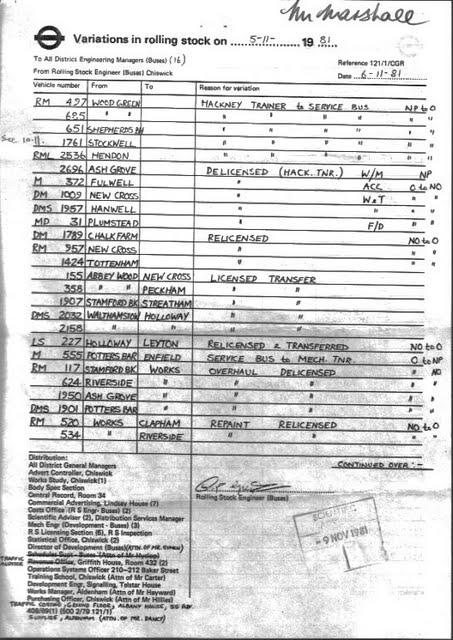 Mr Marshall
Variations in rolling stock on 5-11- 19 81
To All District Engineering Managers (Buses) (16)
Reference 121/1/CGR
From Rolling Stock Engineer (Buses) Chiswick
Date 6-11-81
Vehicle number From To Reason for variation
RM 497 WOOD GREEN HACKNEY TRAINER to SERVICE BUS NP to O
685 " " " " " " "
651 SHEPHERDS BH " " " " "
Sec 10-11. 1761 STOCKWELL " " " " "
RML 2536 HENDON " " " " "
2696 ASH GROVE DELICENSED (HACK. TNR.) W/M NP
M 372 FULWELL " ACC O to NO
DM 1009 NEW CROSS " W&T "
DMS 1957 HANWELL " " "
MD 31 PLUMSTEAD " F/D "
DM 1789 CHALK FARM RELICENSED NO to O
RM 957 NEW CROSS " "
1424 TOTTENHAM " "
155 ABBEY WOOD NEW CROSS LICENSED TRANSFER
358 " " PECKHAM " "
1907 STAMFORD BK STREATHAM " "
DMS 2032 WALTHAMSTOW HOLLOWAY " "
2158 " " " " "
LS 227 HOLLOWAY LEYTON RELICENSED & TRANSFERRED NO to O
M 555 POTTERS BAR ENFIELD SERVICE BUS to MECH. TNR. O to NP
RM 117 STAMFORD BK WORKS OVERHAUL DELICENSED " NO
624 RIVERSIDE " " " "
1950 ASH GROVE " " " "
DMS 1901 POTTERS BAR " " " "
RM 520 WORKS CLAPHAM REPAINT RELICENSED NO to O
534 " RIVERSIDE " " "
CONTINUED OVER :-
Distribution:
All District General Managers
Advert Controller, Chiswick
Works Study, Chiswick(1)
Body Spec Section
Central Record, Room 34
Commercial Advertising, Lindsey House (7)
Costs Office (R S Engr- Buses) (2)
Scientific Adviser (2), Distribution Services Manager
Mech Engr (Development - Buses) (3)
R S Licensing Section (6), R S Inspection
Statistical Office, Chiswick (2)
Director of Development (Buses)
Schedules Supt - Buses
TRAFFIC Revenue Office, Griffith House, Room 432 (2)
Operations Systems Officer 210-212 Baker Street
Training School, Chiswick (Attn of Mr Carter)
Development Engr, Signalling, Telstar House
Works Manager, Aldenham (Attn of Mr Hayward)
Purchasing Officer, Chiswick (Attn of Mr Hillies)
TRAFFIC COSTING, GROUND FLOOR, ALBANY HOUSE, 55 BDY.
408/89(1) (500 2/79 121/1)
SUPPLIES, ALDENHAM (ATTN. OF MR. DANCY)
Rolling Stock Engineer (Buses)
- 9 NOV 1981